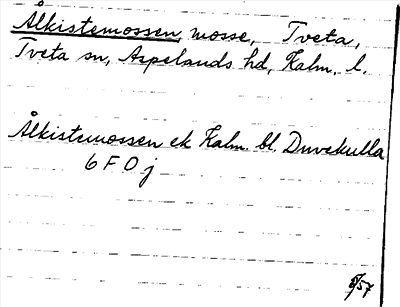 Ålkistemossen, mosse, Tveta,
Tveta sn, Aspelands hd, Kalm. l.
Ålkistemossen ek Kalm. bl. Duvekulla
6 F 0 j